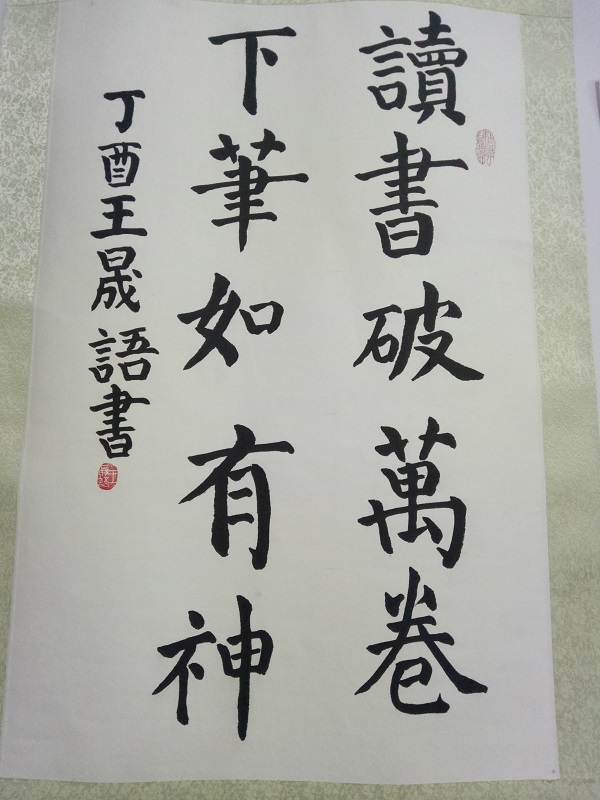 讀書破萬卷
下筆如有神
丁酉王晟語書